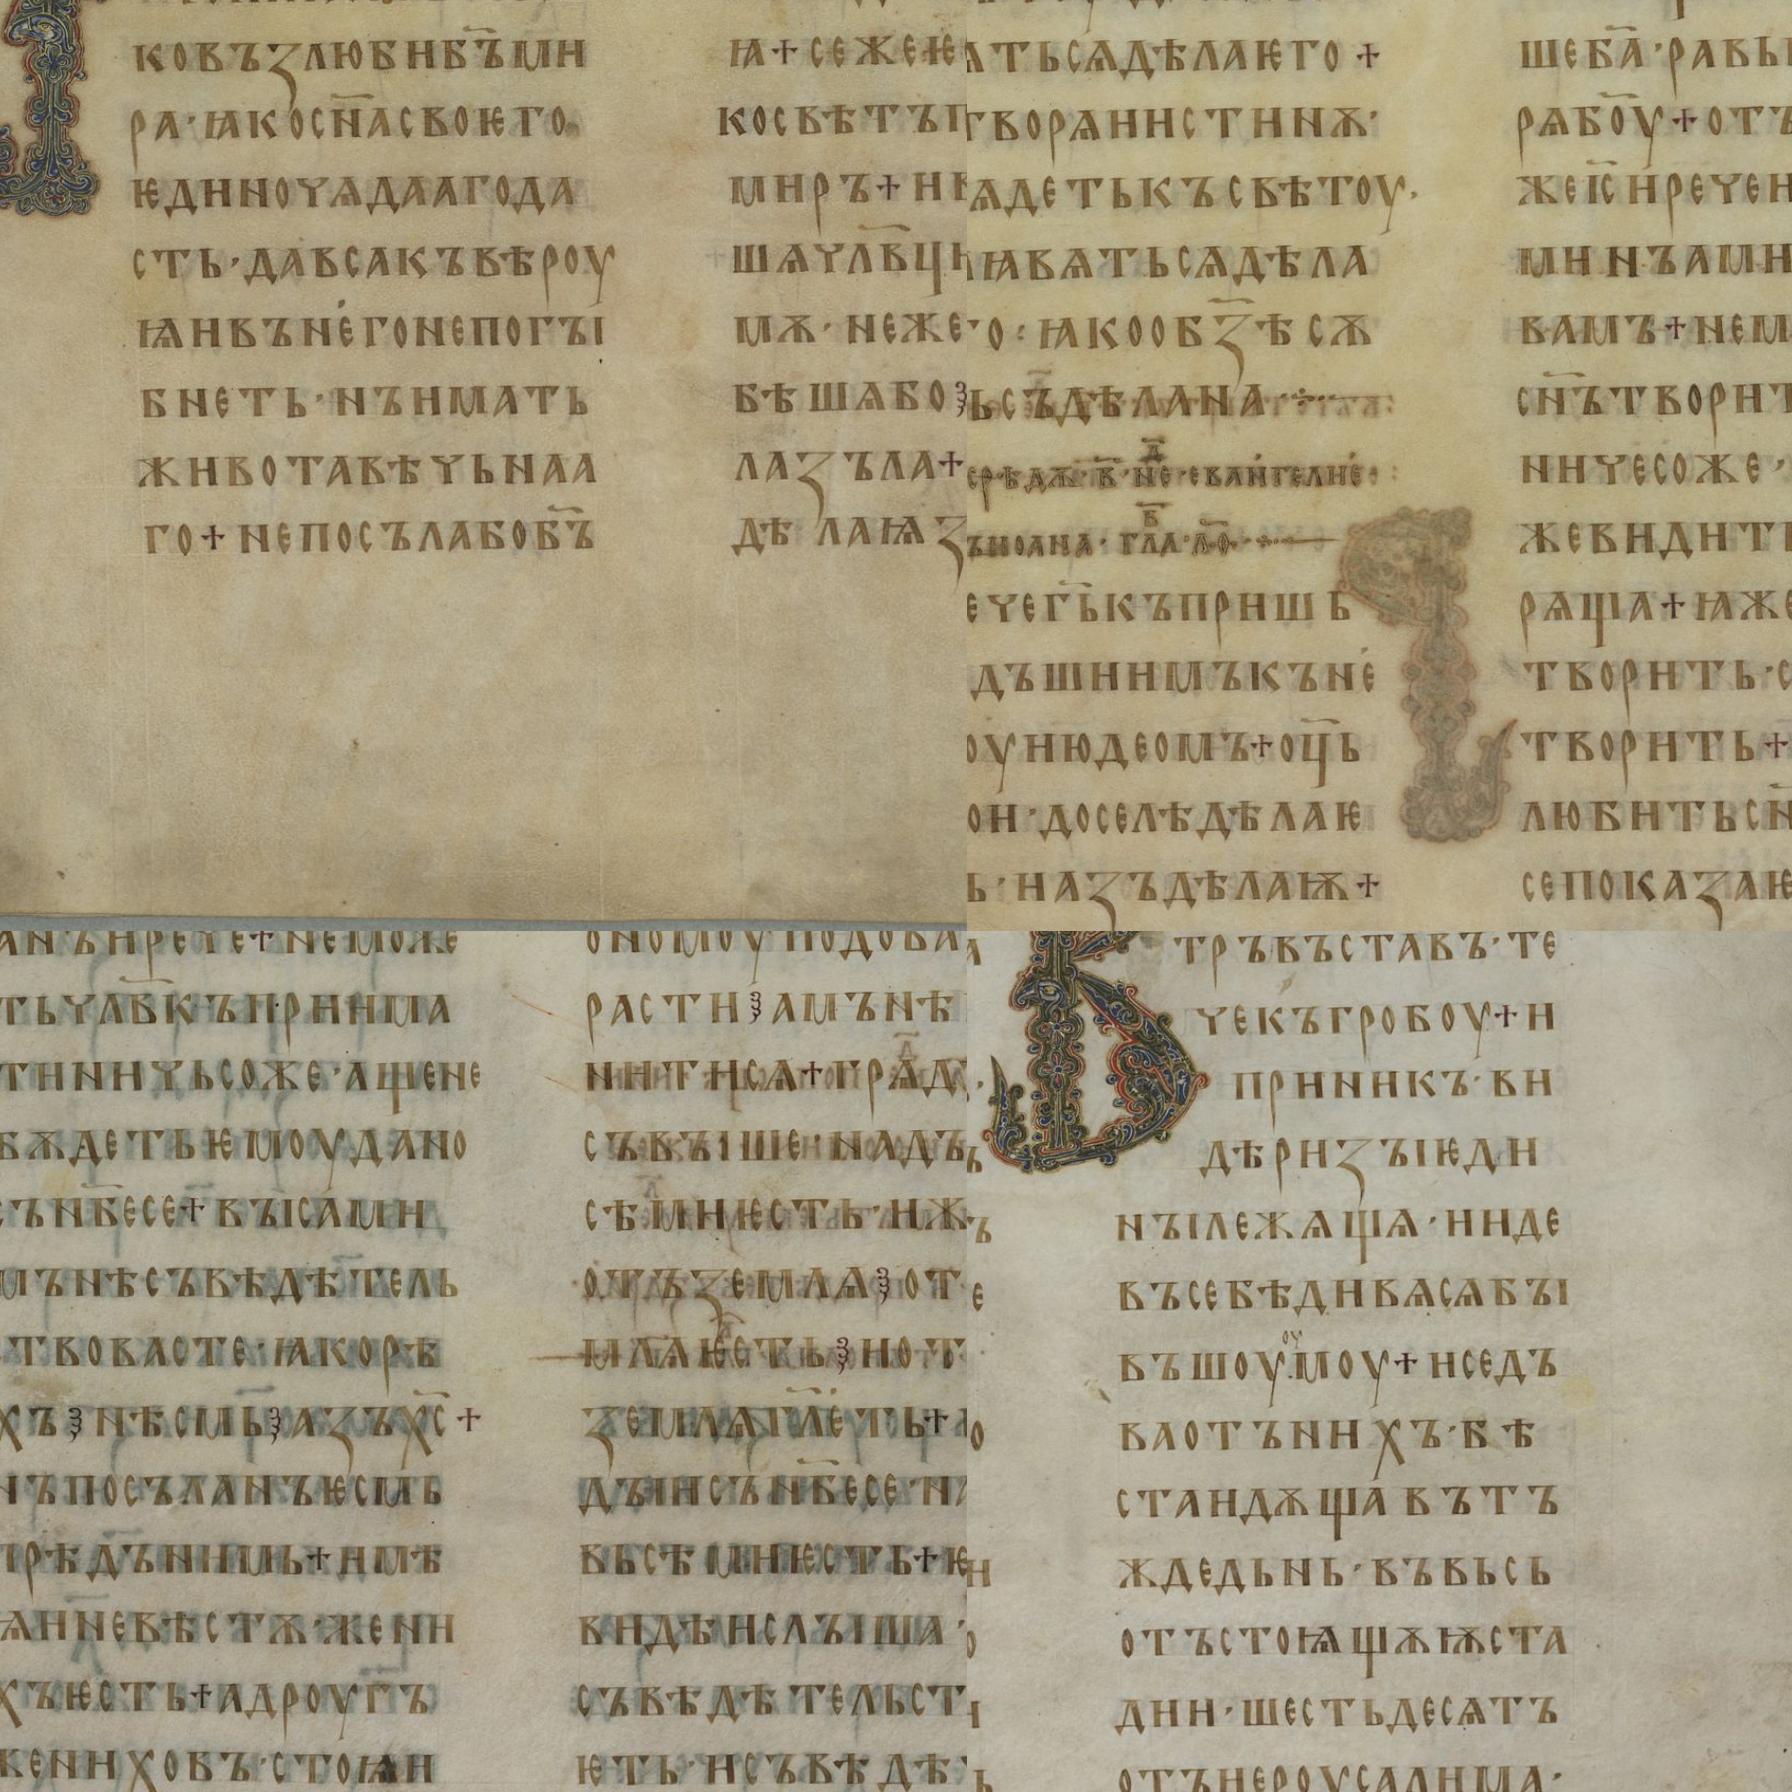 ковъзлюбибъ҃ми
ра·ꙗкосн҃асвоѥго
ѥдиноучѧдаагода
сть·давсакъвѣроу
ѩивънегонепогꙑ
бнеть·нъимать
животавѣчьнаа
го+непосълабобъ҃
ꙗ+сежеѥ
косвѣтъп
миръ+и
шѧчл҃вц
мѫ·неже
бѣшѧбо
лазъла+
дѣлаѩ
тьсѧдѣлаѥго+
творѧиистинѫ·
ѧдетькъсвѣтоу·
ꙗвѧтьсѧдѣла
о:ꙗкообз҃ѣсѫ
ьсъдѣлана
срѣдѫ·в҃·не·еваньгелие
ъиоана·гла·л҃ѳ
ечегь҃къпришь
дъшиимъкъне
оуиюдеомъ+оць҃
ои·доселѣдѣлаѥ
ь·иазъдѣлаѭ+
шеба҃·равь
рѧбо҃у+отъ
жеіс҃иречен
минъами
вамъ+нем
сн҃ътвори
ничесоже·
жевидит
рѧща+ꙗже
творить·с
творить+
любитьсн҃
сепоказаѥ
анъирече+неможе
тьчл҃вкъприима
тиничьсоже·ащене
бѫдетьѥмоудано
сън҃бесе+вꙑсами
мънѣсъвѣдѣтель
твовасте·ꙗкорѣ
хъ·нѣсмь·азъхс҃+
нъпосъланъѥсмь
прѣдънимь+имѣ
ѩин҃евѣстѫ·жени
хъѥсть+адроугъ҃
жениховъ·стоѩи
ономоуподоба
расти·амънѣ
нитисѧ+грѧд
съвꙑше·надъв
сѣмиѥсть·иж
отъземлѧ·от
млѧѥсть·иот
землѧгл҃еть+
дꙑисън҃бесе·н
вьсѣмиѥсть+ѥ
видѣислꙑша·
съвѣдѣтельст
ѥть·исъвѣдѣ
тръвъставъ·те
чекъгробоу+и
приникъ·ви
дѣризꙑѥди
нꙑлежѧщѧ·ииде
въсебѣдивѧсѧбꙑ
въшоуоумоу+иседъ
ваотънихъ·бѣ
стаидѫщавътъ
ждедьнь·въвьсь
отъстоѩщѫѭста
дии·шестьдесѧтъ
отъиероусалима·